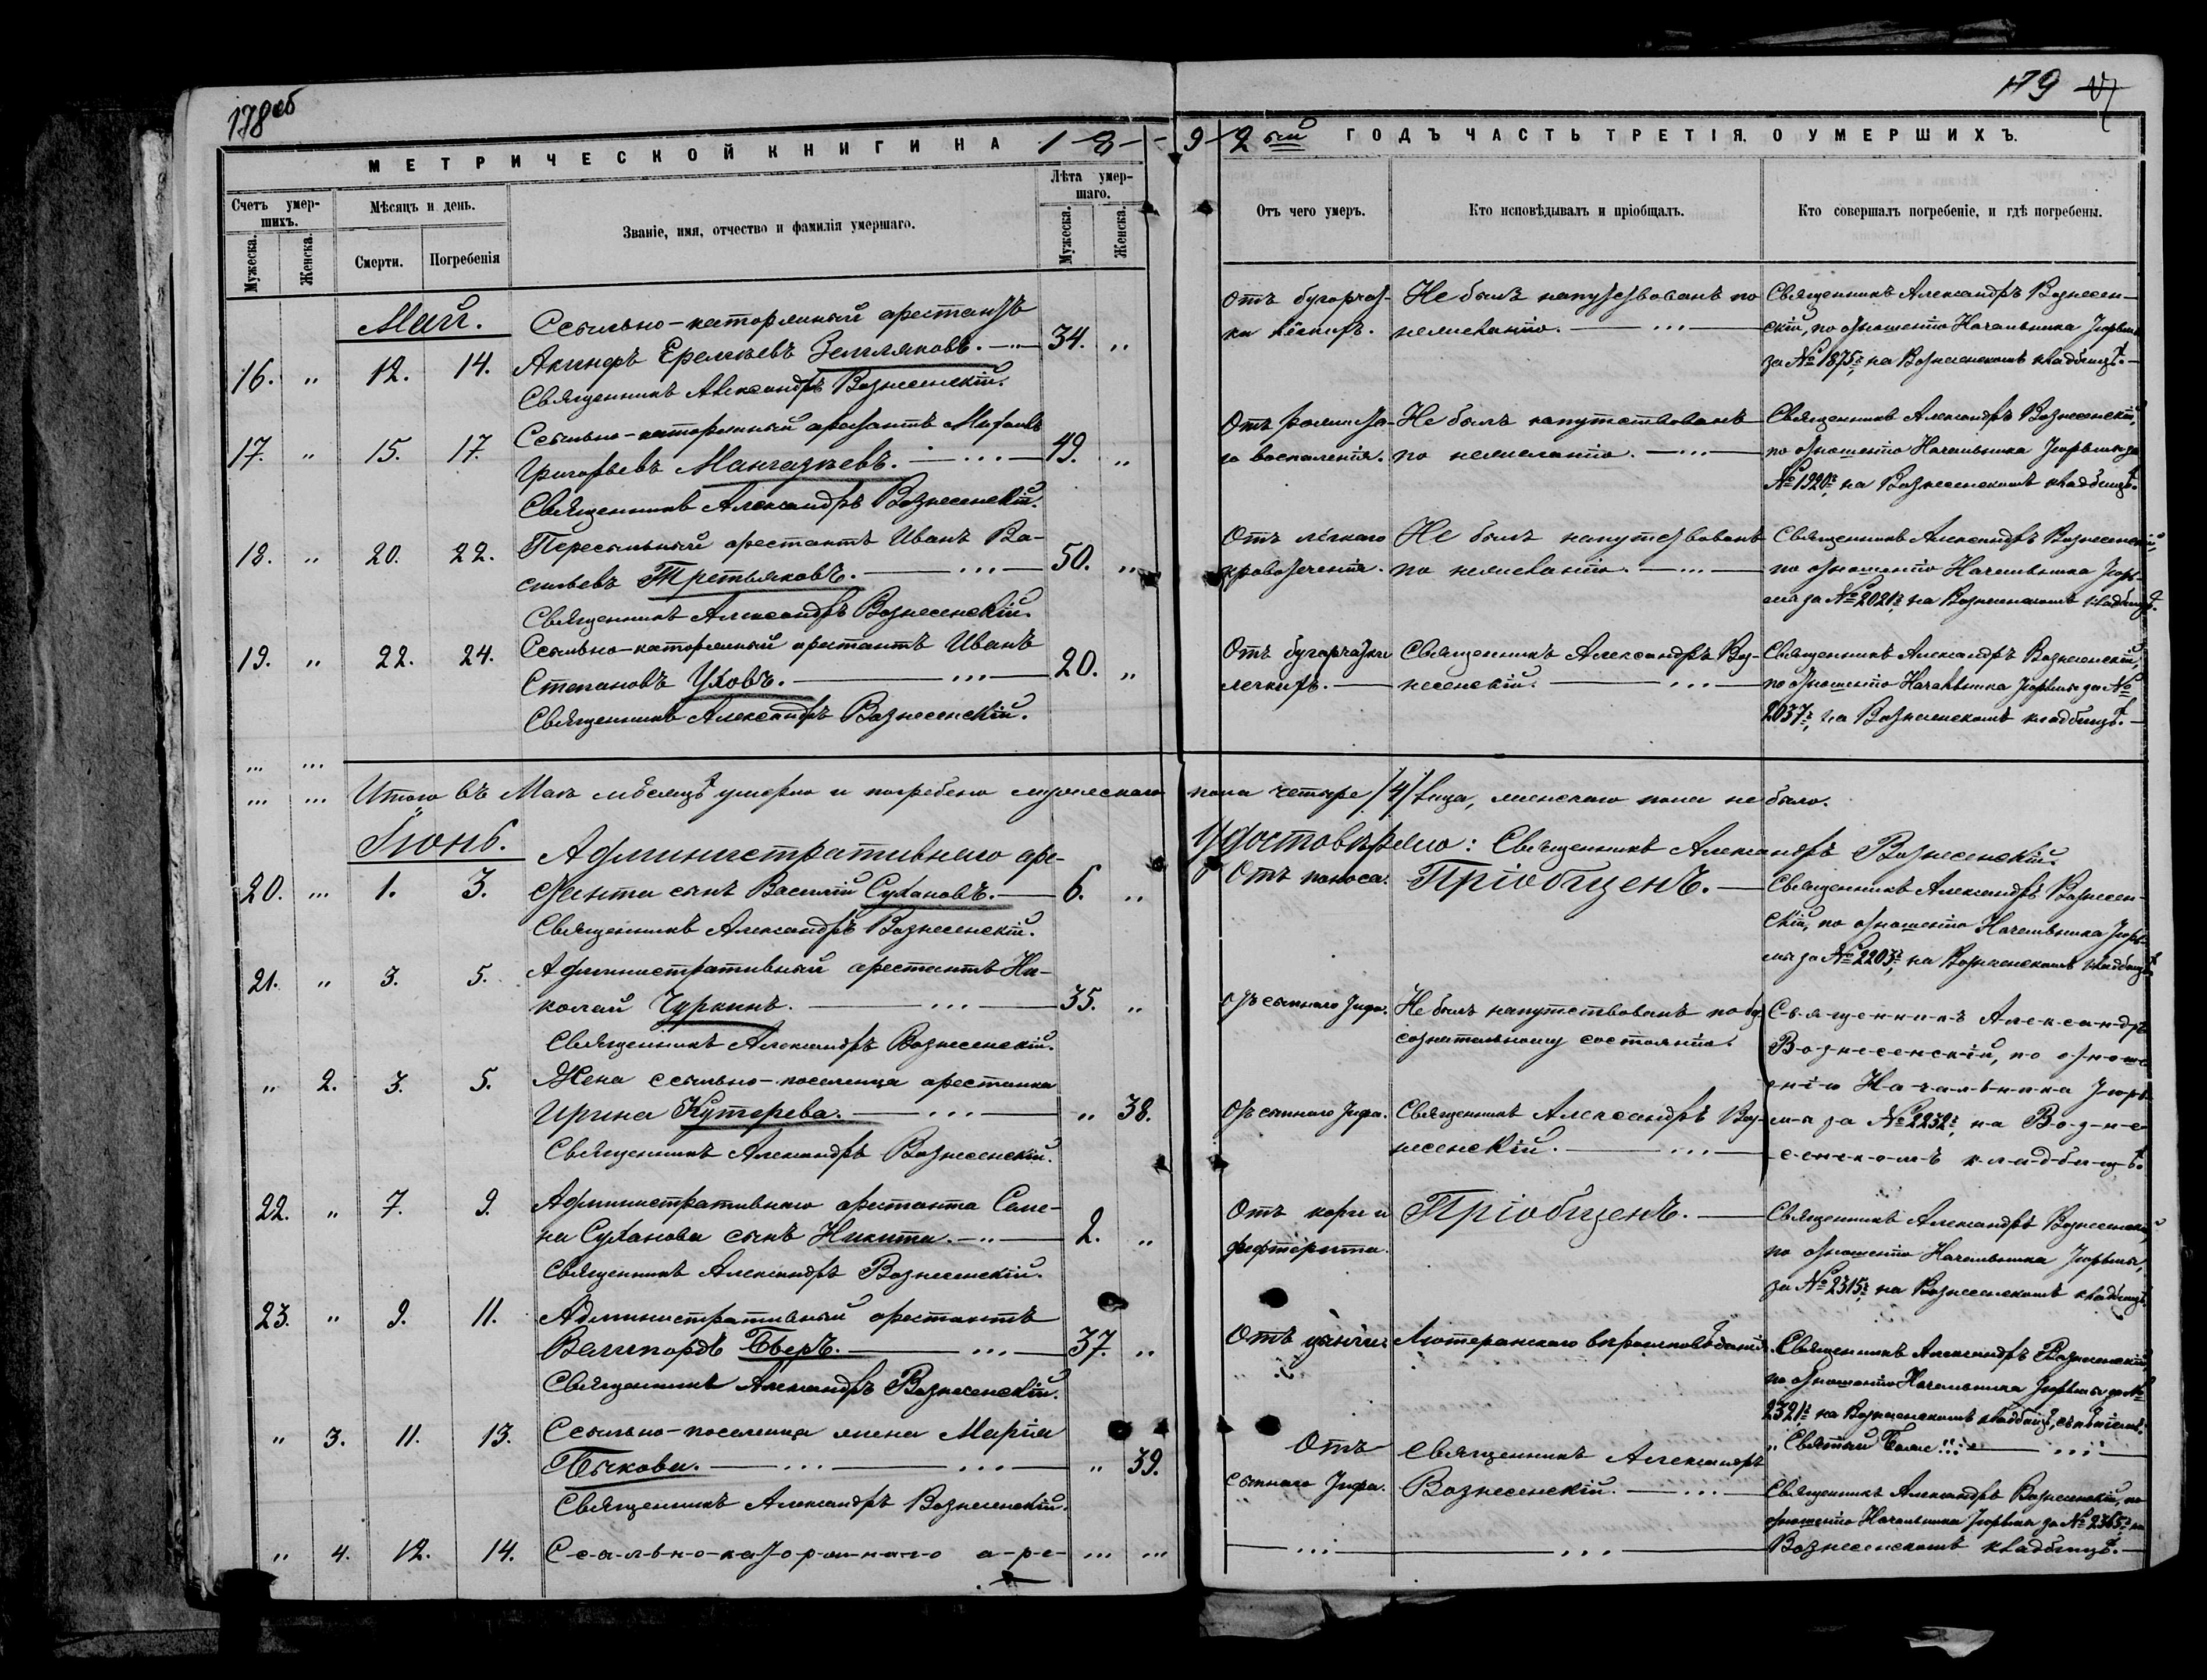 178об
179
МЕТРИЧЕСКОЙ КНИГИ НА 1892ый ГОДЪ ЧАСТЬ ТРЕТІЯ. О УМЕРШИХЪ.
Счетъ умер-
шихъ.
Мужеска.
Женска.
Мѣсяцъ и день.
Смерти.
Погребенія
Званіе, имя, отчество и фамилія умершаго.
Лѣта умер-
шаго.
Мужеска.
Женска.
Отъ чего умеръ.
Кто исповѣдывалъ и пріобщалъ.
Кто совершалъ погребеніе, и гдѣ погребены.
Май.
16. " 12. 14.
Ссыльно-каторжный арестантъ
Акинфъ Еремѣевъ Земляковъ. 34. "
Священникъ Александръ Вознесенскій.
Отъ бугорчат-
ки лёгкихъ.
Не былъ напутствованъ по
нежеланію.
Священникъ Александръ Вознесен-
скій, по отношенію Начальника Тюрьмы
за № 1875, на Вознесенскомъ кладбищѣ.
17. " 15. 17.
Ссыльно-каторжный арестантъ Михаилъ
Григорьевъ Мангазѣевъ. 49. "
Священникъ Александръ Вознесенскій.
воспаленія.
Не былъ напутствованъ
по нежеланію.
Священникъ Александръ Вознесенскій,
по отношенію Начальника Тюрьмы за
№ 1920, на Вознесенскомъ кладбищѣ.
18. " 20. 22.
Пересыльный арестантъ Иванъ Ва-
сильевъ Третьяковъ. 50. "
Священникъ Александръ Вознесенскій.
Отъ лёгкаго
кровотеченія.
Не былъ напутствованъ
по нежеланію.
Священникъ Александръ Вознесенскій,
по отношенію Начальника Тюрь-
мы за № 2020, на Вознесенскомъ кладбищѣ.
19. " 22. 24.
Ссыльно-каторжный арестантъ Иванъ
Степановъ Уховъ. 20. "
Священникъ Александръ Вознесенскій.
Отъ бугорчатки
легкихъ.
Священникъ Александръ Воз-
несенскій.
Священникъ Александръ Вознесенскій,
по отношенію Начальника Тюрьмы за №
2037, на Вознесенскомъ кладбищѣ.
Итого въ Маѣ мѣсяцѣ умерло и погребено мужескаго пола четыре /4/ лица, женскаго пола не было.
Удостовѣряю: Священникъ Александръ Вознесенскій.
Іюнь.
20. ... 1. 3.
Административнаго аре-
станта сынъ Василій Сухановъ. 6. "
Священникъ Александръ Вознесенскій.
Отъ поноса.
Пріобщенъ.
Священникъ Александръ Вознесен-
скій, по отношенію Начальника Тюрь-
мы за № 2203, на Вознесенскомъ кладбищѣ
21. " 3. 5.
Административный арестантъ Ни-
колай Чуркинъ. 35. "
Священникъ Александръ Вознесенскій.
Отъ сыпнаго тифа.
Не былъ напутствованъ по без-
сознательному состоянію.
Священникъ Александръ
Вознесенскій, по отноше-
нію Начальника Тюрь-
мы за № 2232, на Возне-
сенскомъ кладбищѣ.
" 2. 3. 5.
Жена ссыльно-поселенца арестанка
Ирина Кутерева. " 38.
Священникъ Александръ Вознесенскій.
Отъ сыпнаго тифа.
Священникъ Александръ Воз-
несенскій.
22. " 7. 9.
Административнаго арестанта Семе-
на Суханова сынъ Никита. 2. "
Священникъ Александръ Вознесенскій.
Отъ кори и
дифтерита.
Пріобщенъ.
Священникъ Александръ Вознесенскій
по отношенію Начальника Тюрьмы,
за № 2315, на Вознесенскомъ кладбищѣ.
23. " 9. 11.
Административный арестантъ
37. "
Священникъ Александръ Вознесенскій.
Отъ цынги.
Лютеранскаго вѣроисповѣданія.
Священникъ Александръ Вознесенскій,
по отношенію Начальника Тюрьмы за №
2321, на Вознесенскомъ кладбищѣ, съ пѣніемъ
"Святый Боже"!
" 3. 11. 13.
Ссыльно-поселенца жена Марія
Бычкова. " 39.
Священникъ Александръ Вознесенскій.
Отъ
сыпнаго тифа.
Священникъ Александръ
Вознесенскій.
Священникъ Александръ Вознесенскій, по
отношенію Начальника Тюрьмы за № 2365, на
Вознесенскомъ кладбищѣ.
" 4. 12. 14.
Ссыльно-каторжнаго аре-